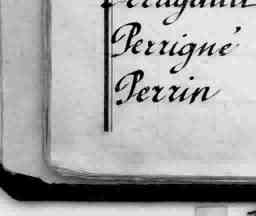 Perrigné
Perrin